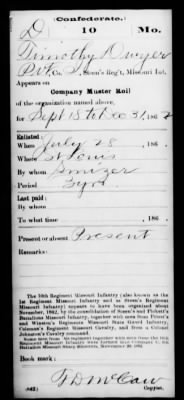 (Confederate.)
D 10 Mo.
Timothy Dwyer
Pvt, Co. D, Steen's Reg't, Missouri Inf.
Appears on
Company Muster Roll
of the organization named above,
for Sept 18 to Dec 31, 1862
Enlisted:
When July 28, 186 .
Where St Louis
By whom
Period 3 yrs
Last paid:
By whom
To what time , 186 .
Present or absent Present
Remarks:
The 10th Regiment Missouri Infantry (also known as the
Regiment Missouri Infantry and as Steen's Regiment
Missouri Infantry) appears to have been organized about
November, 1862, by the consolidation of Steen's and Pickett's
Battalion Missouri Infantry, together with men from
and Winston's Regiments Missouri State Guard Infantry,
Coleman's Regiment Missouri Cavalry, and from a Colonel
Johnson's Cavalry command.
Book mark:
(642) Copyist.